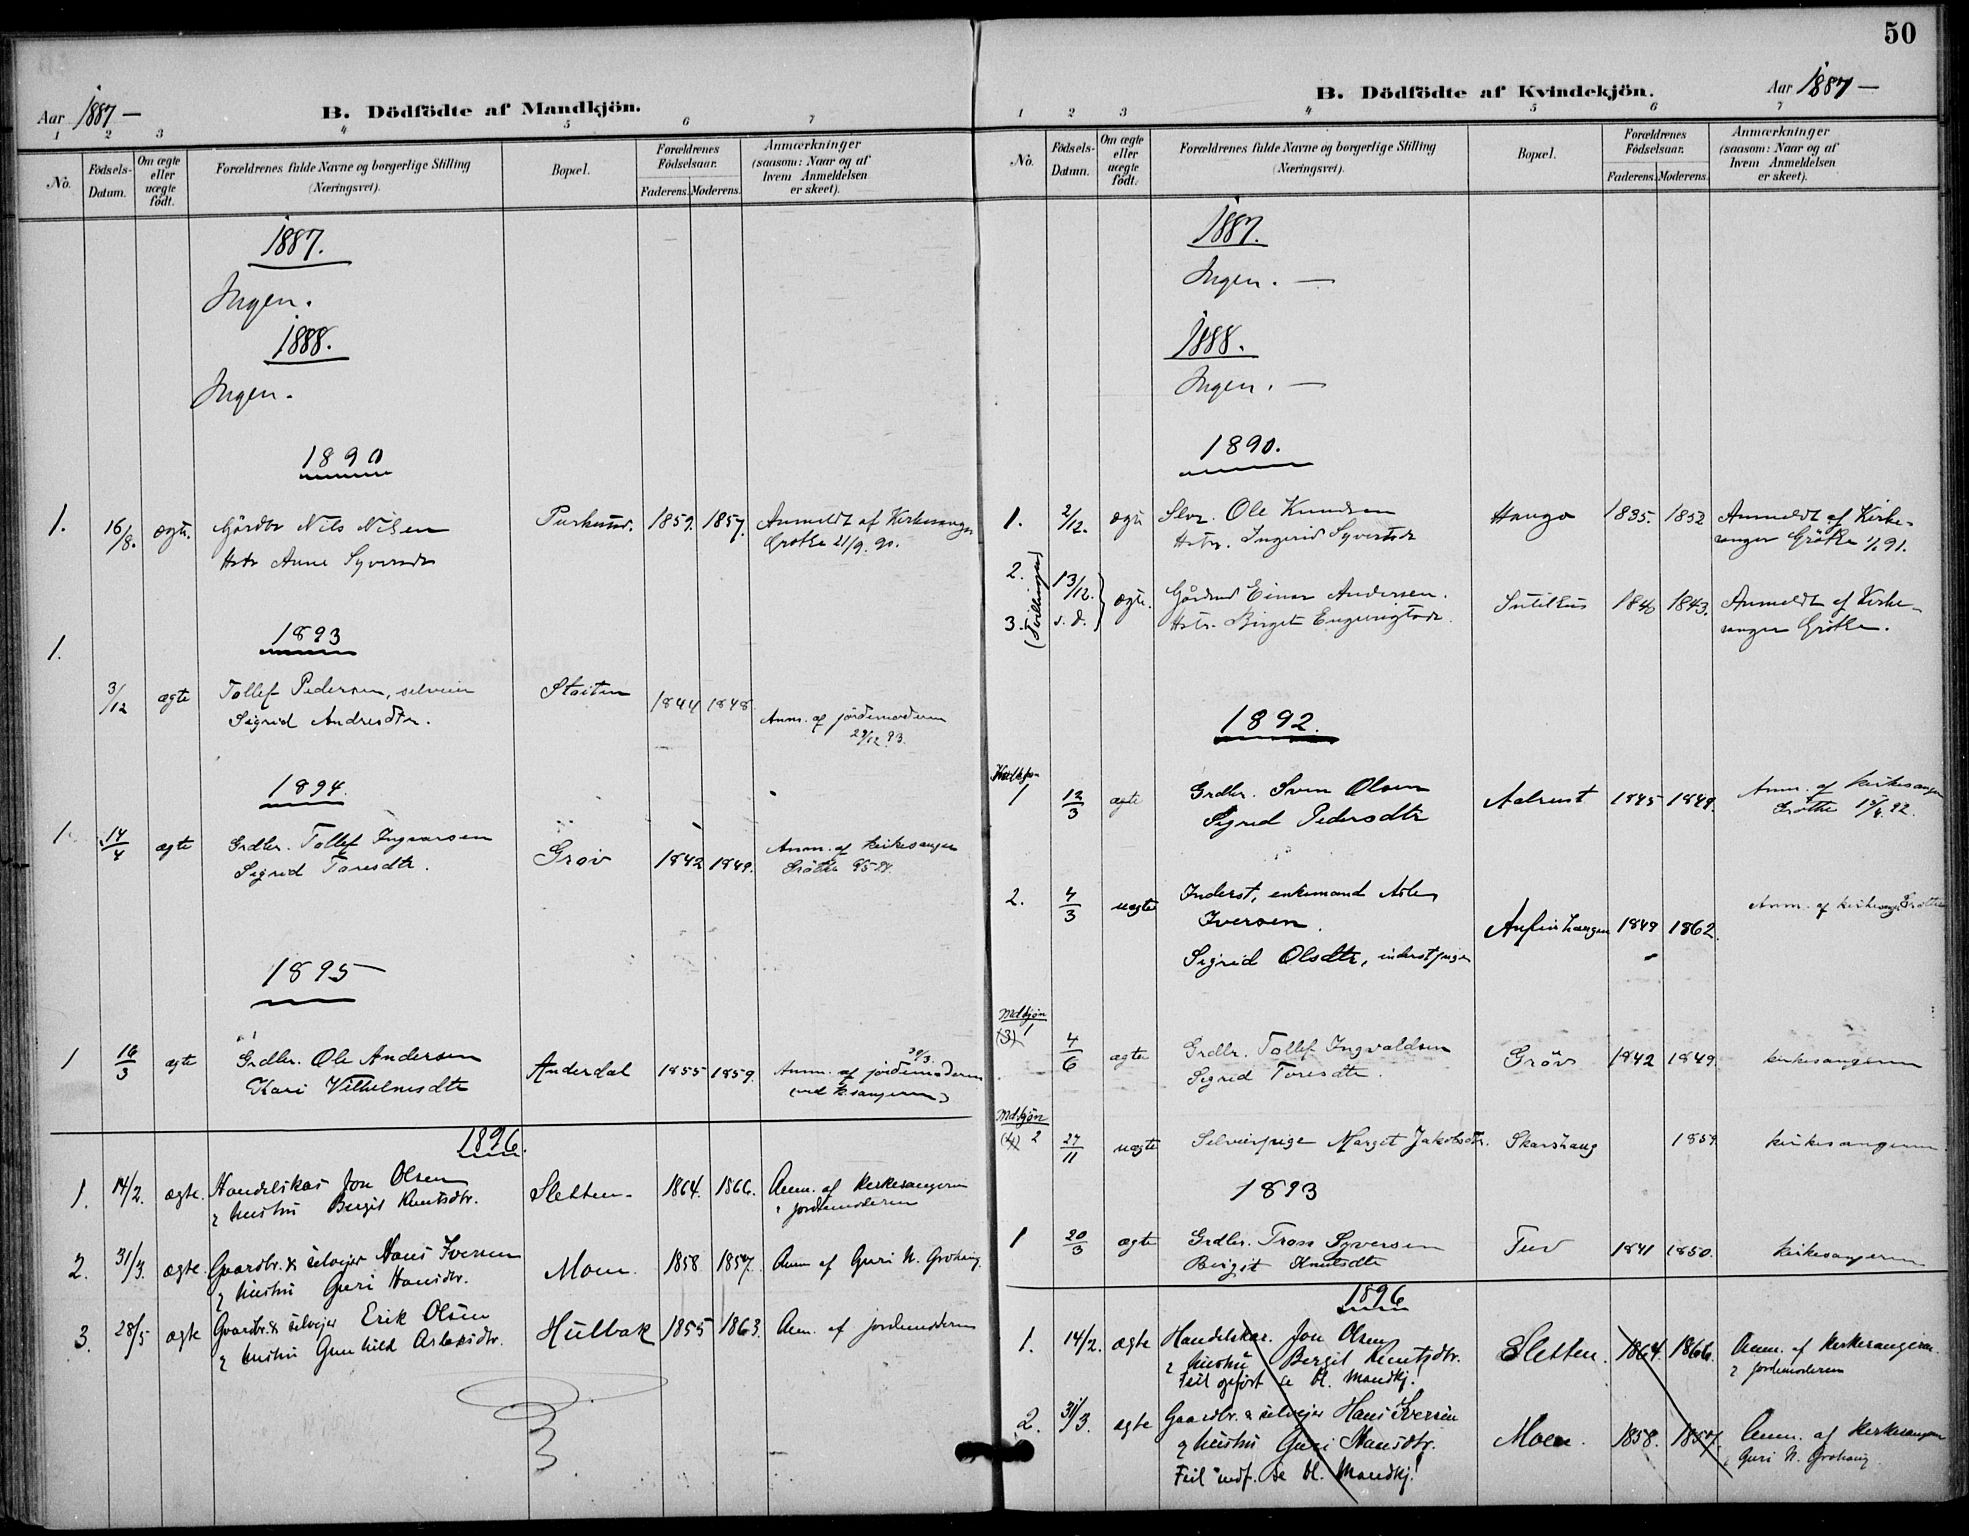 Aar 1887 —
B. Dödfödte af Mandkjön.
1 2 3 4 5 6 7
No.
Födsels-
Datum.
Om ægte
eller
uægte
födt.
Forældrenes fulde Navne og borgerlige Stilling
(Næringsvei).
Bopæl.
Forældrenes
Födselsaar.
Faderens. Moderens.
Anmærkninger
(saasom: Naar og af
hvem Anmeldelsen
er skeet).
1887.
Ingen.
1888.
Ingen.
1890
1. 16/8. ægte. Gårdbr Nils Nilsen 1859. 1857. Anmeldt af Kirkesanger
Hstr Anne Syversdr Grøthe 21/9. 90.
1893
1.
3/12 ægte Tollef Pedersen, selveier 1844 1848
Sigrid Andresdtr. Anm. af jordemoderen
29/12 93.
1894.
1 14/4 ægte Grdbr. Tollef Ingvarsen Grøv 1842 1849. Anm. af kirkesanger
Sigrid Toresdtr.
1895
1 16/3 ægte Grdbr. Ole Andersen Anderdal 1855 1859. Anm. af jordemoderen
Kari Vilhelmsdtr
1896.
1. 14/2. ægte. Handelskar Jon Olsen Sletten. 1864. 1866. Anm. af Kirkesangeren
& hustru Bergit Knutsdtr. & jordemoderen
2. 31/3. ægte. Gaardbr. & selveier Hans Iversen Moen. 1858 1857. Anm af Guri N. Grøhaug.
& hustru Guri Hansdtr.
3. 28/5 ægte Gaardbr. & selveier Erik Olsen Hulbak 1855 1863. Anm. af jordemoderen
& hustru Gunhild Aslaksdtr.
50
Aar 1887 —
B. Dödfödte af Kvindekjön.
1 2 3 4 5 6 7
No.
Födsels-
Datum.
Om ægte
eller
uægte
födt.
Forældrenes fulde Navne og borgerlige Stilling
(Næringsvei).
Bopæl.
Forældrenes
Födselsaar.
Faderens. Moderens.
Anmærkninger
(saasom: Naar og af
hvem Anmeldelsen
er skeet).
1887.
Ingen. —
1888.
Ingen. —
1890.
1. 2/12. ægte Selv. Ole Knudsen Hauga 1835. 1852 Anmeldt af Kirke-
Hstr. Ingerid Syvertsdr sanger Grøthe 1/1 91.
2. 13/12. ægte. Gårdmd Einar Andersen. 1843. Anmeldt af Kirke-
3. s. d. Hstr. Birgit sanger Grøthe.
(Tvillinger)
1892.
1 12/3 ægte Grdbr. Sven Olsen 1845 1849. Anm. af kirkesanger
Sigrid Pedersdtr Grøthe
2. 4/3 uægte Inderst, enkemand
Iversen. 1849 1862.
Sigrid Olsdtr, inderstpige
Anm. af kirkesanger Grøthe
Mdkjøn
(3) 1 4/6 ægte Grdbr. Tollef Ingvaldsen Grøv 1842 1849. kirkesangeren
Sigrid Toresdtr.
Mdkjøn
(4) 2 27/11 uægte Selveierpige Marget Jakobsdtr. Skarshaug 1859 kirkesangeren
1893
1 20/3 ægte Grdbr. Trass Syversen Tuv 1841 1850. kirkesangeren
Birgit Knutsdtr
1896
1. 14/2. ægte Handelskar. Jon Olsen Sletten. 1864. 1866. Anm. af Kirkesangeren
& hustru Bergit Knutsdtr. & jordemoderen
Feil opført se bl. Mandkj.!
2. 31/3. ægte Gaardbr. & selveier Hans Iversen Moen. 1858. 1857. Anm. af Kirkesangeren
& hustru Guri Hansdtr. & Guri N. Grøhaug
Feil indf. se bl. Mandkj.!